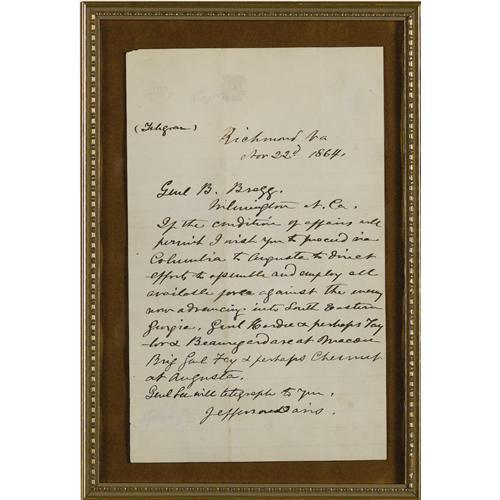 (Telegram)
Richmond Va
Nov 22d 1864.
Genl B. Bragg.
Wilmington N. Ca.
If the condition of affairs will
permit I wish you to proceed via
Columbia to Augusta to direct
efforts to assemble and employ all
available force against the enemy
now advancing into South Eastern
Georgia. Genl Hardee & perhaps Tay
-lor & Beauregard are at Macon
Brig Genl Fry & perhaps Chesnut
at Augusta.
Genl Lee will telegraph to you.
Jefferson Davis.